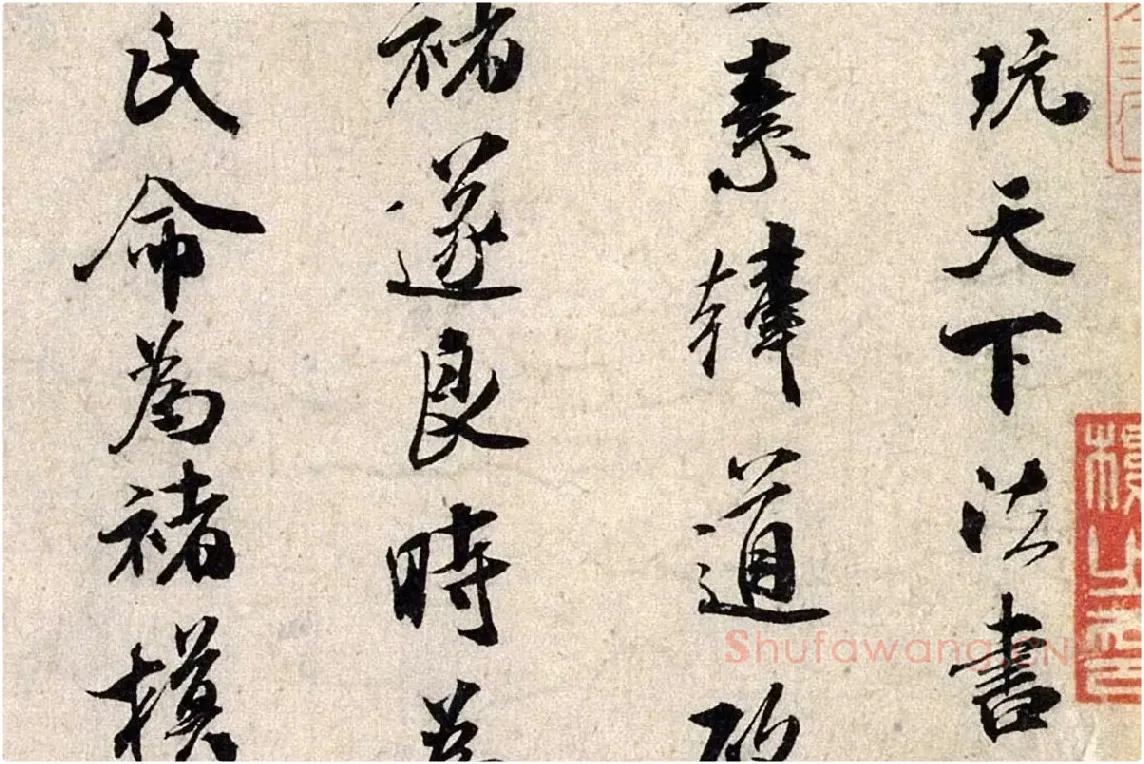 玩天下法書
素韓道政
褚遂良時
氏命為褚模
Shufawang.CN